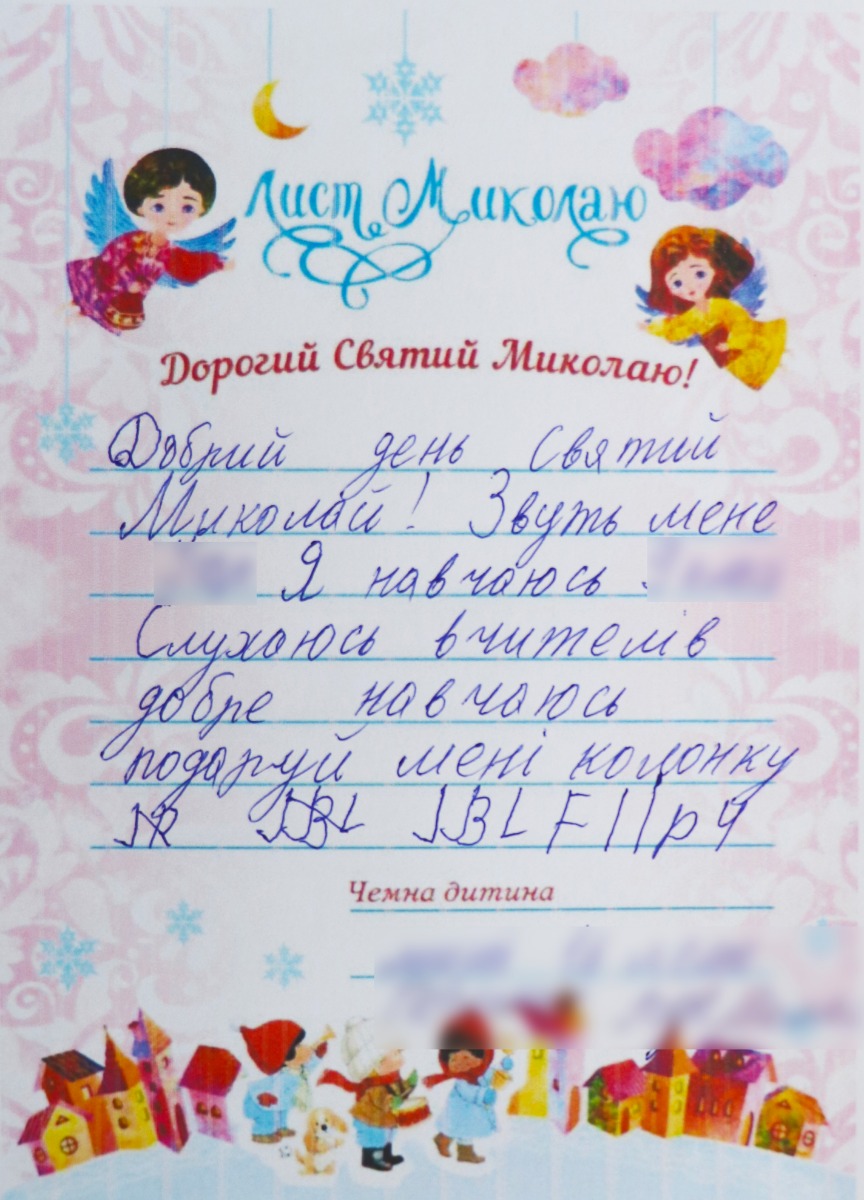 Лист Миколаю
Дорогий Святий Миколаю!
Добрий день Святий
Миколай! Звуть мене
Я навчаюсь
Слухаюсь вчителів
добре навчаюсь
подаруй мені колонку
JBL JBL Fllp4
Чемна дитина